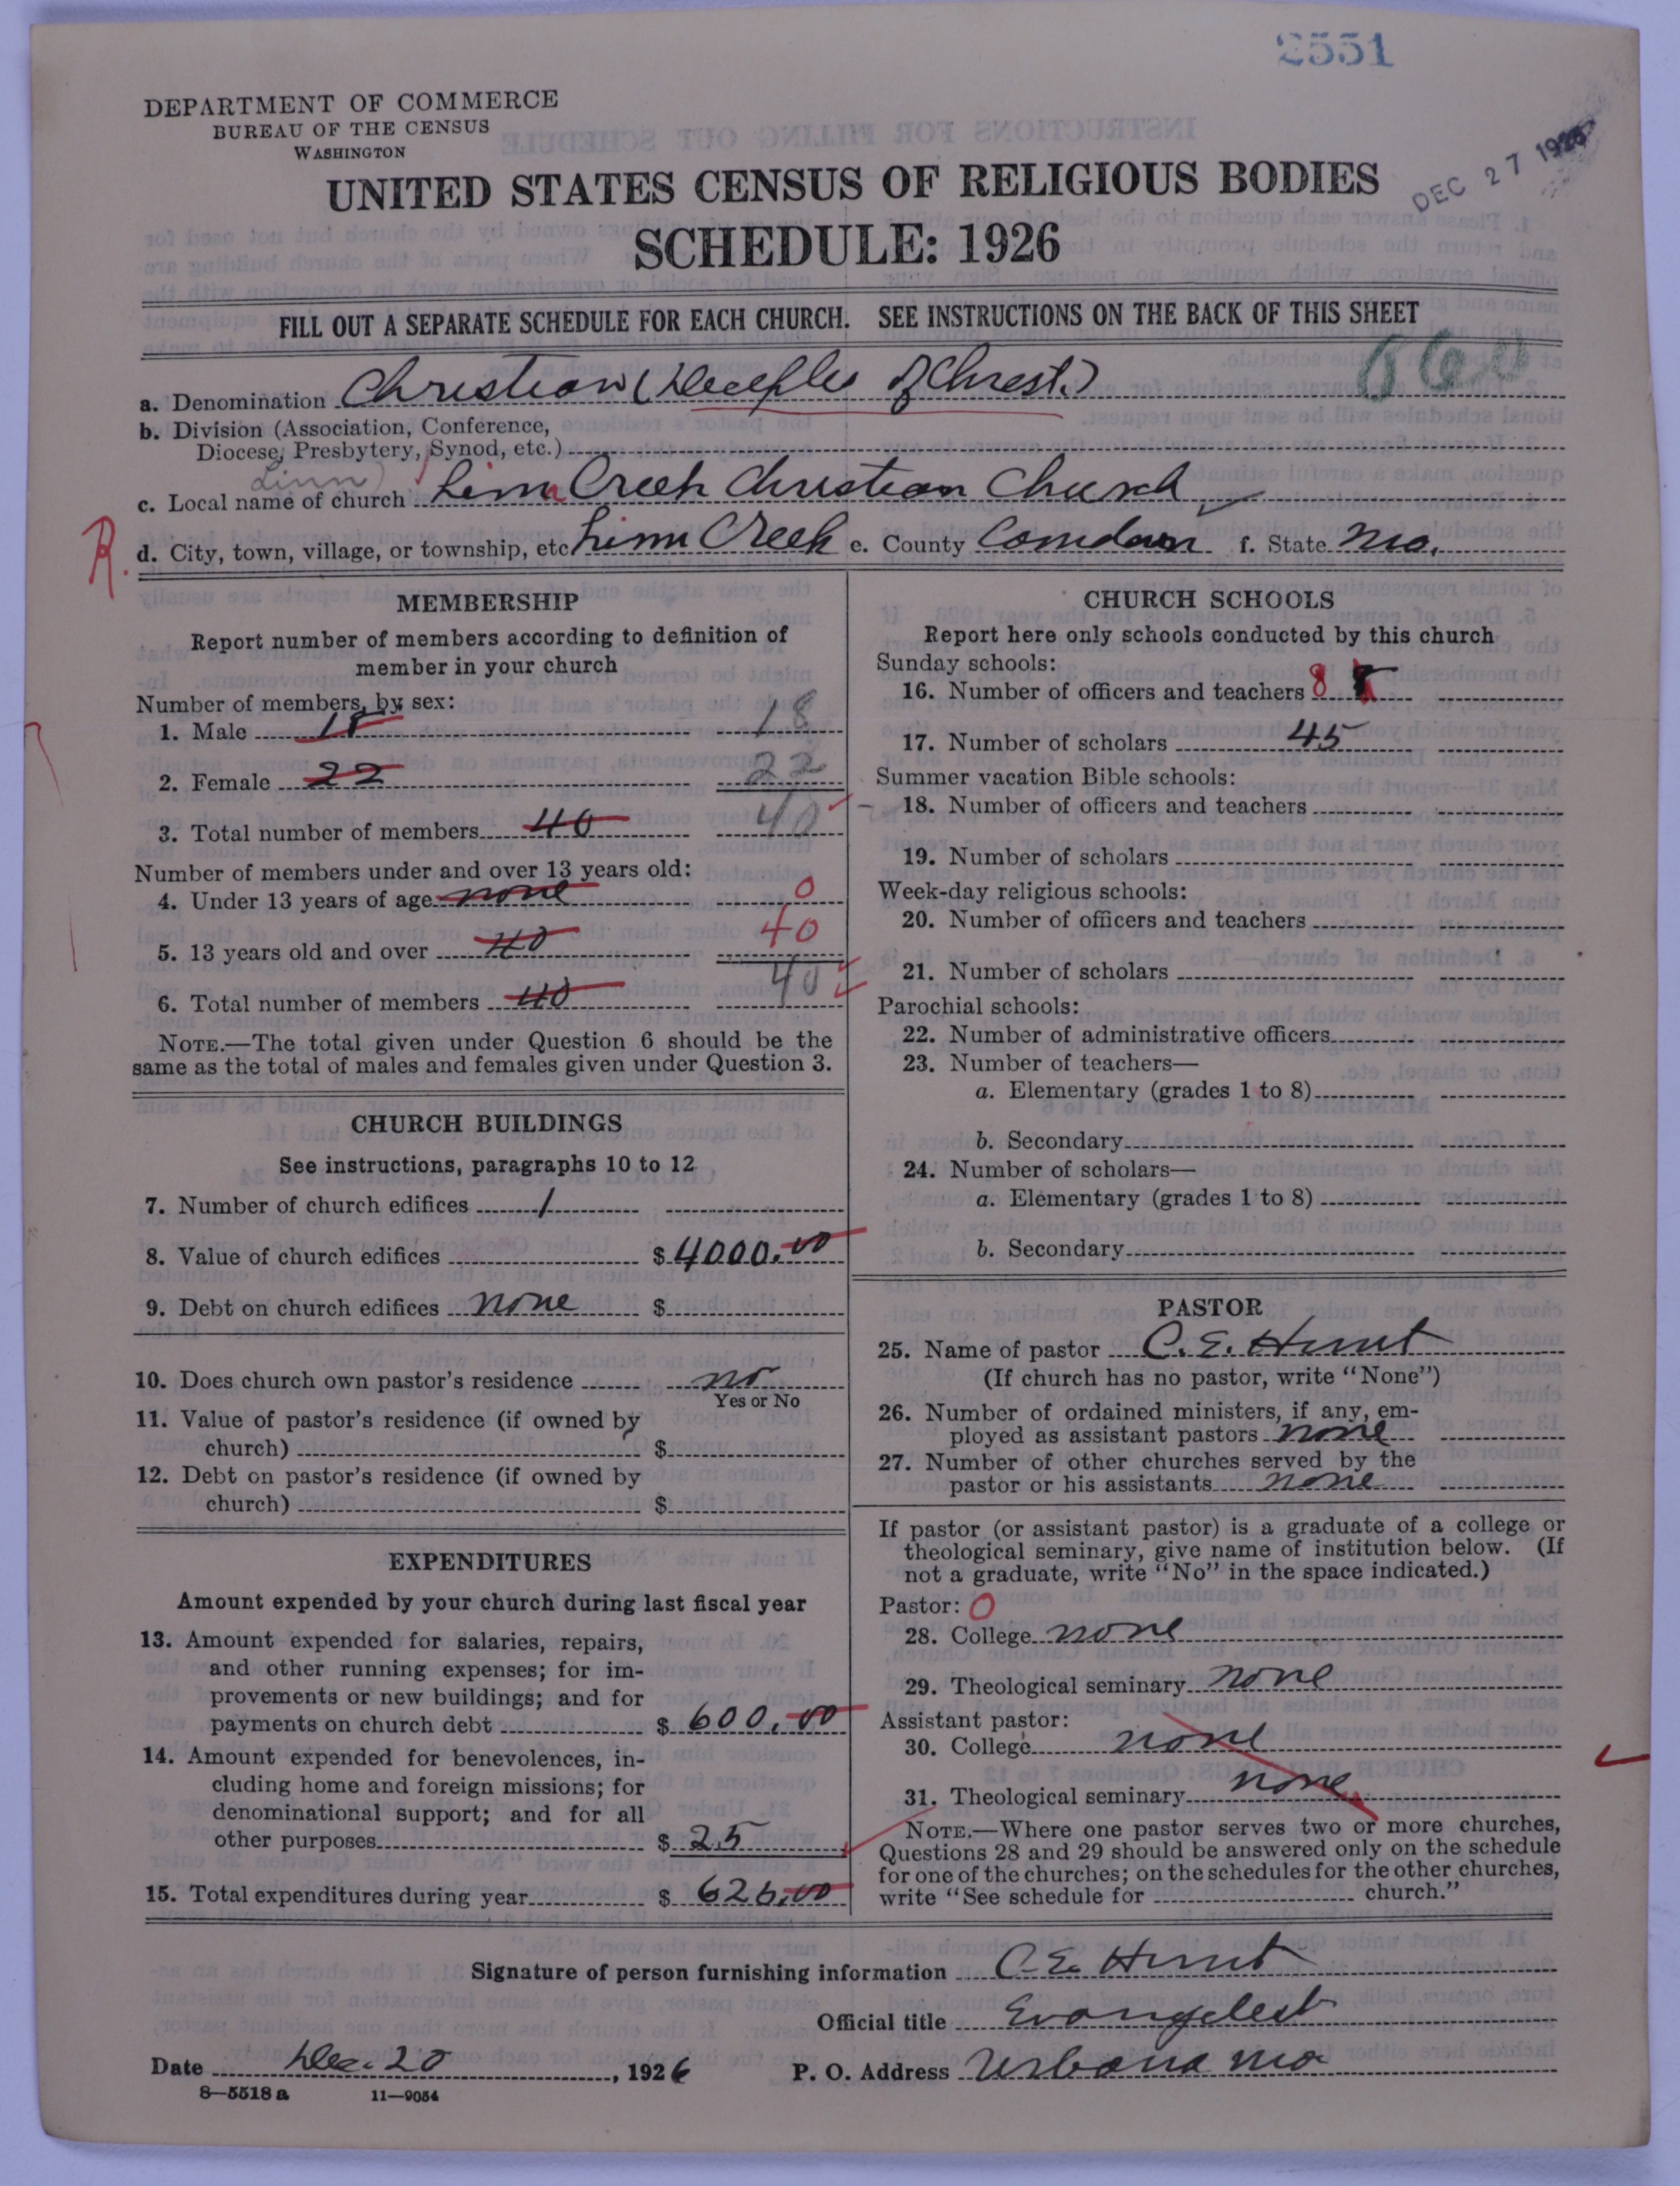 2551
DEPARTMENT OF COMMERCE
BUREAU OF THE CENSUS
WASHINGTON
DEC 27 1926
UNITED STATES CENSUS OF RELIGIOUS BODIES
SCHEDULE: 1926
FILL OUT A SEPARATE SCHEDULE FOR EACH CHURCH. SEE INSTRUCTIONS ON THE BACK OF THIS SHEET
660
a. Denomination Christian (Deciples of Christ.)
b. Division (Association, Conference,
Diocese, Presbytery, Synod, etc.)
Linn
c. Local name of church Linn Creek Christian Church
R. d. City, town, village, or township, etc Linn Creek e. County Camden f. State Mo.
MEMBERSHIP
Report number of members according to definition of
member in your church
Number of members, by sex:
1. Male 18 18
2. Female 22 22
3. Total number of members 40 40
Number of members under and over 13 years old:
4. Under 13 years of age none 0
5. 13 years old and over 40 40
6. Total number of members 40 40
NOTE.—The total given under Question 6 should be the
same as the total of males and females given under Question 3.
CHURCH BUILDINGS
See instructions, paragraphs 10 to 12
7. Number of church edifices 1
8. Value of church edifices $ 4000.00
9. Debt on church edifices none $
10. Does church own pastor's residence no
Yes or No
11. Value of pastor's residence (if owned by
church) $
12. Debt on pastor's residence (if owned by
church) $
EXPENDITURES
Amount expended by your church during last fiscal year
13. Amount expended for salaries, repairs,
and other running expenses; for im-
provements or new buildings; and for
payments on church debt $ 600.00
14. Amount expended for benevolences, in-
cluding home and foreign missions; for
denominational support; and for all
other purposes $ 25
15. Total expenditures during year $ 625.00
CHURCH SCHOOLS
Report here only schools conducted by this church
Sunday schools:
16. Number of officers and teachers 8 8
17. Number of scholars 45
Summer vacation Bible schools:
18. Number of officers and teachers
19. Number of scholars
Week-day religious schools:
20. Number of officers and teachers
21. Number of scholars
Parochial schools:
22. Number of administrative officers
23. Number of teachers—
a. Elementary (grades 1 to 8)
b. Secondary
24. Number of scholars—
a. Elementary (grades 1 to 8)
b. Secondary
PASTOR
25. Name of pastor C. E. Hunt
(If church has no pastor, write "None")
26. Number of ordained ministers, if any, em-
ployed as assistant pastors none
27. Number of other churches served by the
pastor or his assistants none
If pastor (or assistant pastor) is a graduate of a college or
theological seminary, give name of institution below. (If
not a graduate, write "No" in the space indicated.)
Pastor: 0
28. College none
29. Theological seminary none
Assistant pastor:
30. College none
31. Theological seminary none
NOTE.—Where one pastor serves two or more churches,
Questions 28 and 29 should be answered only on the schedule
for one of the churches; on the schedules for the other churches,
write "See schedule for church."
Signature of person furnishing information C. E. Hunt
Official title Evangelist
Date Dec. 20, 1926 P. O. Address Urbana Mo
8—5518 a 11—9054